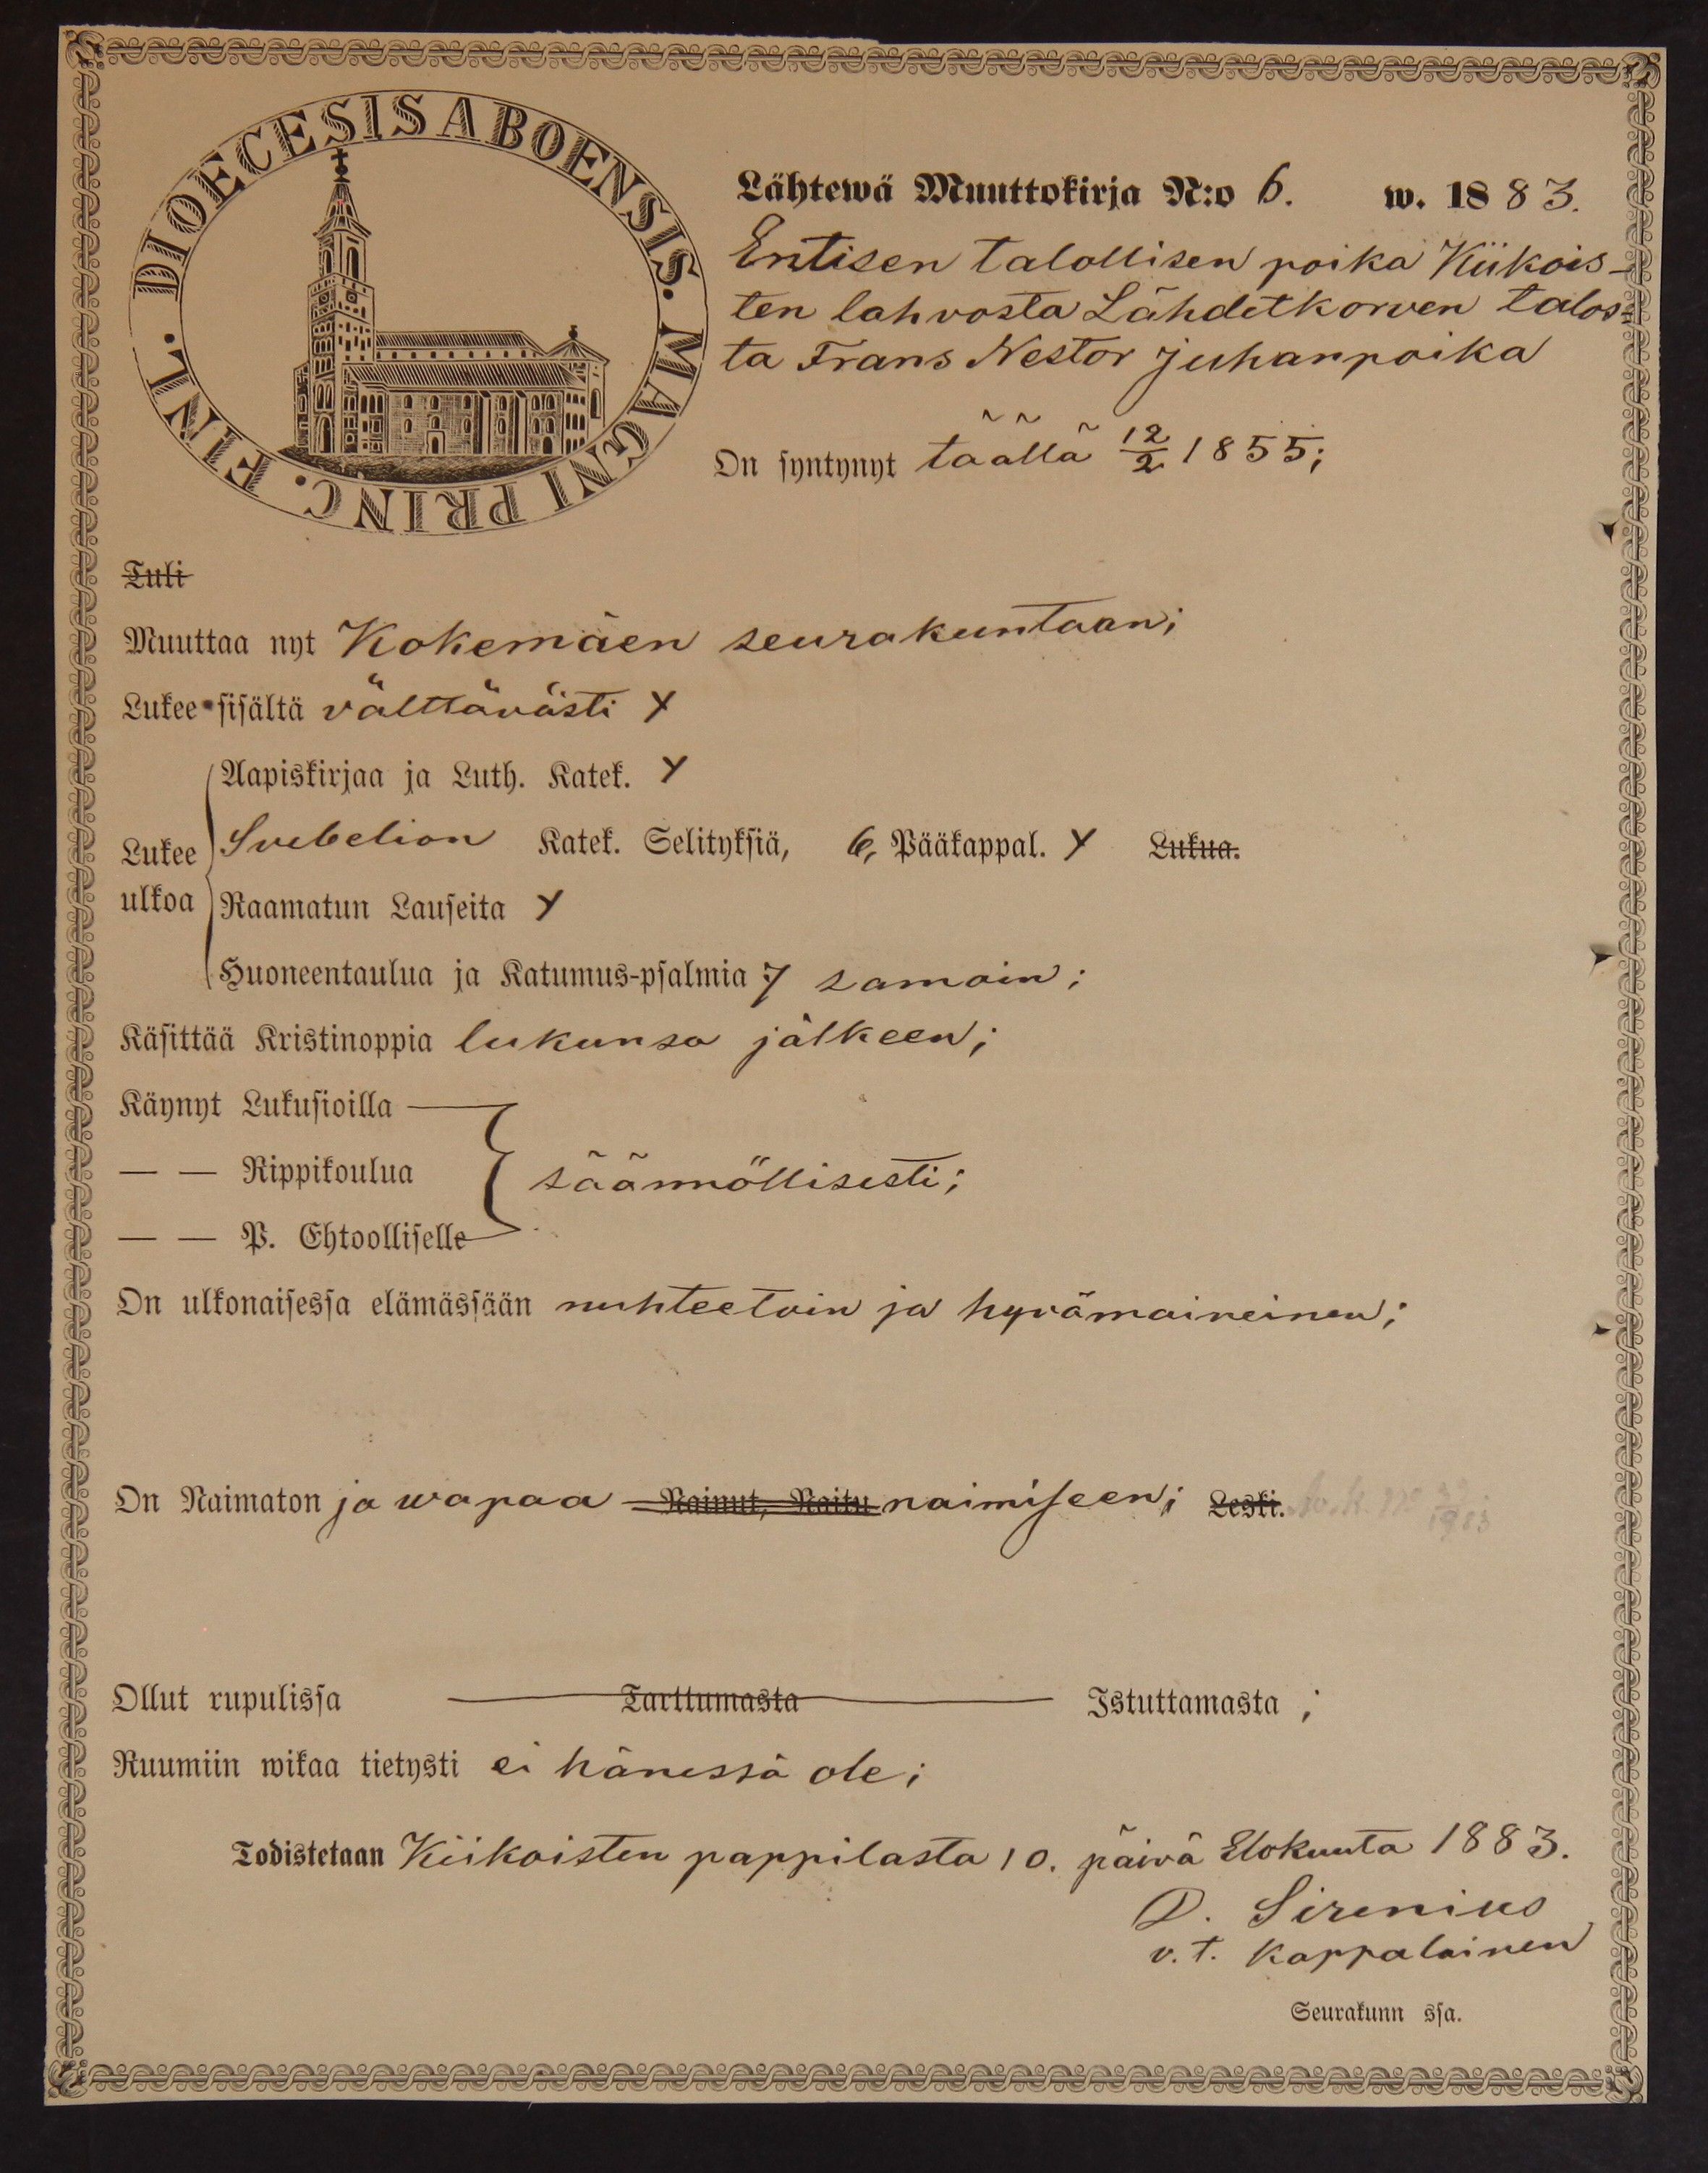 DIOECESIS ABOENSIS. MAGNI PRINC. FINL.
Lähtewä Muuttokirja N:o 6. w. 1883.
Entisen talollisen poika Kiikois-
ten lahvosta Lähdetkorven talos=
ta Frans Nestor Juhanpoika
On syntynyt täällä 12/2 1855;
Tuli
Muuttaa nyt Kokemäen seurakuntaan;
Lukee sisältä välttävästi Y
Aapiskirjaa ja Luth. Katek. Y
Lukee ulkoa
Svebelion Katek. Selityksiä, 6, Pääkappal. Y Lukua.
Raamatun Lauseita Y
Huoneentaulua ja Katumus-psalmia 7 samoin;
Käsittää Kristinoppia lukunsa jälkeen;
Käynyt Lukusioilla
— — Rippikoulua säännöllisesti;
— — P. Ehtoolliselle
On ulkonaisessa elämässään nuhteetoin ja hyvämaineinen;
On Naimaton ja wapaa Nainut, Naitu naimiseen; Leski.
Ollut rupulissa Tarttumasta Istuttamasta ;
Ruumiin wikaa tietysti ei hänessä ole;
Todistetaan Kiikoisten pappilasta 10. päivä Elokuuta 1883.
D. Sirenius
v.t. Kappalainen
Seurakunn ssa.